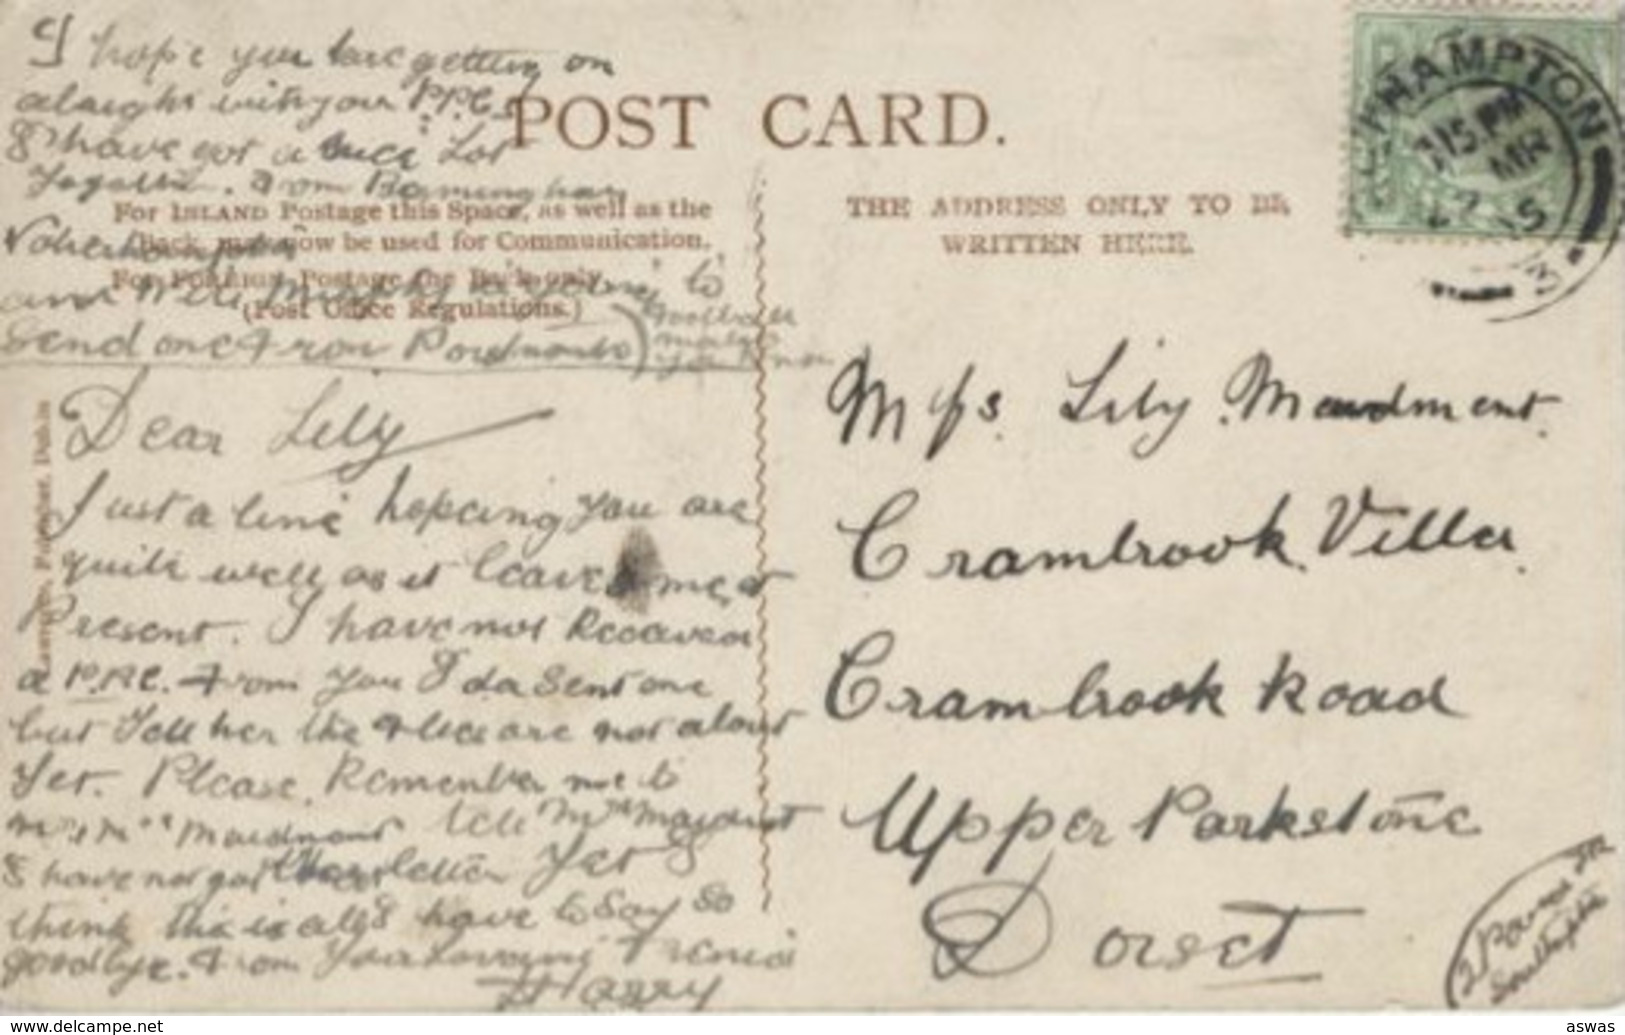 I hope you are getting on
alright with your P.P.C.s
I have got a nice Lot
Together. From Birmingham
Wolverhampton
and Will Mighty to
Send one From Portsmouth
football
match
you know
POST CARD.
For INLAND Postage this Space, as well as the
Back, may now be used for Communication.
For FOREIGN Postage the Back only.
(Post Office Regulations.)
THE ADDRESS ONLY TO BE
WRITTEN HERE.
THAMPTON
MR
3
Dear Lily
Just a line hopeing you are
quite well as it leaves me at
Present. I have not Received
a P.P.C. From you I da Sent one
but Tell her the are not about
Yet. Please Remember me to
Mr & Mrs Maidment tell Mrs
I have not got letter Yet I
think this is all I have to Say so
goodbye. From Your Loving Friend
Harry
Miss Lily Maidment.
Crambrook Villa.
Crambrook Road
Upper Parkstone
Dorset
aswas
www.delcampe.net